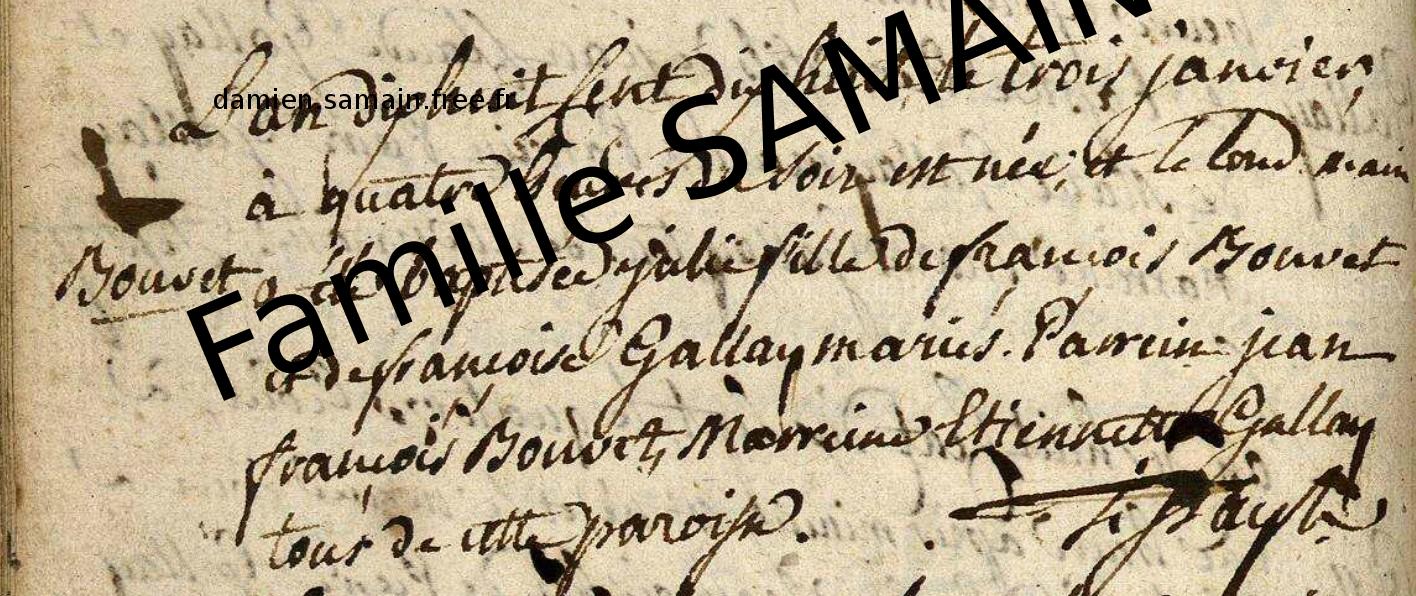 L'an diphuit sent dixhuit, le trois janvier,
à quatre heures du soir est née, et le lend.main
Bouvet a été baptisée julie fille de françois Bouvet
et de françoise Gallay mariés. Parrein jean
françois Bouvet, Marreine Etiennette Gallay
tous de cette paroisse.
damien.samain.free.fr
Famille SAMAIN